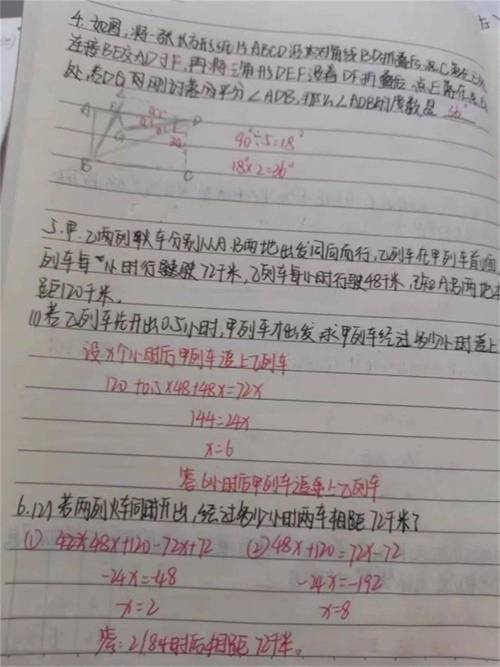 4. 如图,将一张长方形纸片ABCD沿着对角线BD折叠后,点C落在点E处,
连接BE交AD于F,再将三角形DEF沿着DF折叠后,点E落在点G
处,若DG刚刚好平分∠ADB,那么∠ADB的度数是 36°
A
E
F
D
G
B
C
90°÷5=18°
18°×2=36°
5.甲.乙两列火车分别从A.B两地出发同向而行,乙列车在甲列车前面
列车每小时行驶72千米,乙列车每小时行驶48千米,已知A.B两地
距120千米.
(1)若乙列车先开出0.5小时,甲列车才出发,求甲列车经过多少小时追上
设x个小时后甲列车追上乙列车
120+0.5×48+48x=72x
144=24x
x=6
答:6小时后甲列车追上乙列车
6.(2)若两列火车同时开出,经过多少小时两车相距72千米?
(1) 48x+120=72x+72
(2) 48x+120=72x-72
-24x=-48
-24x=-192
x=2
x=8
答:2/8小时后相距72千米。